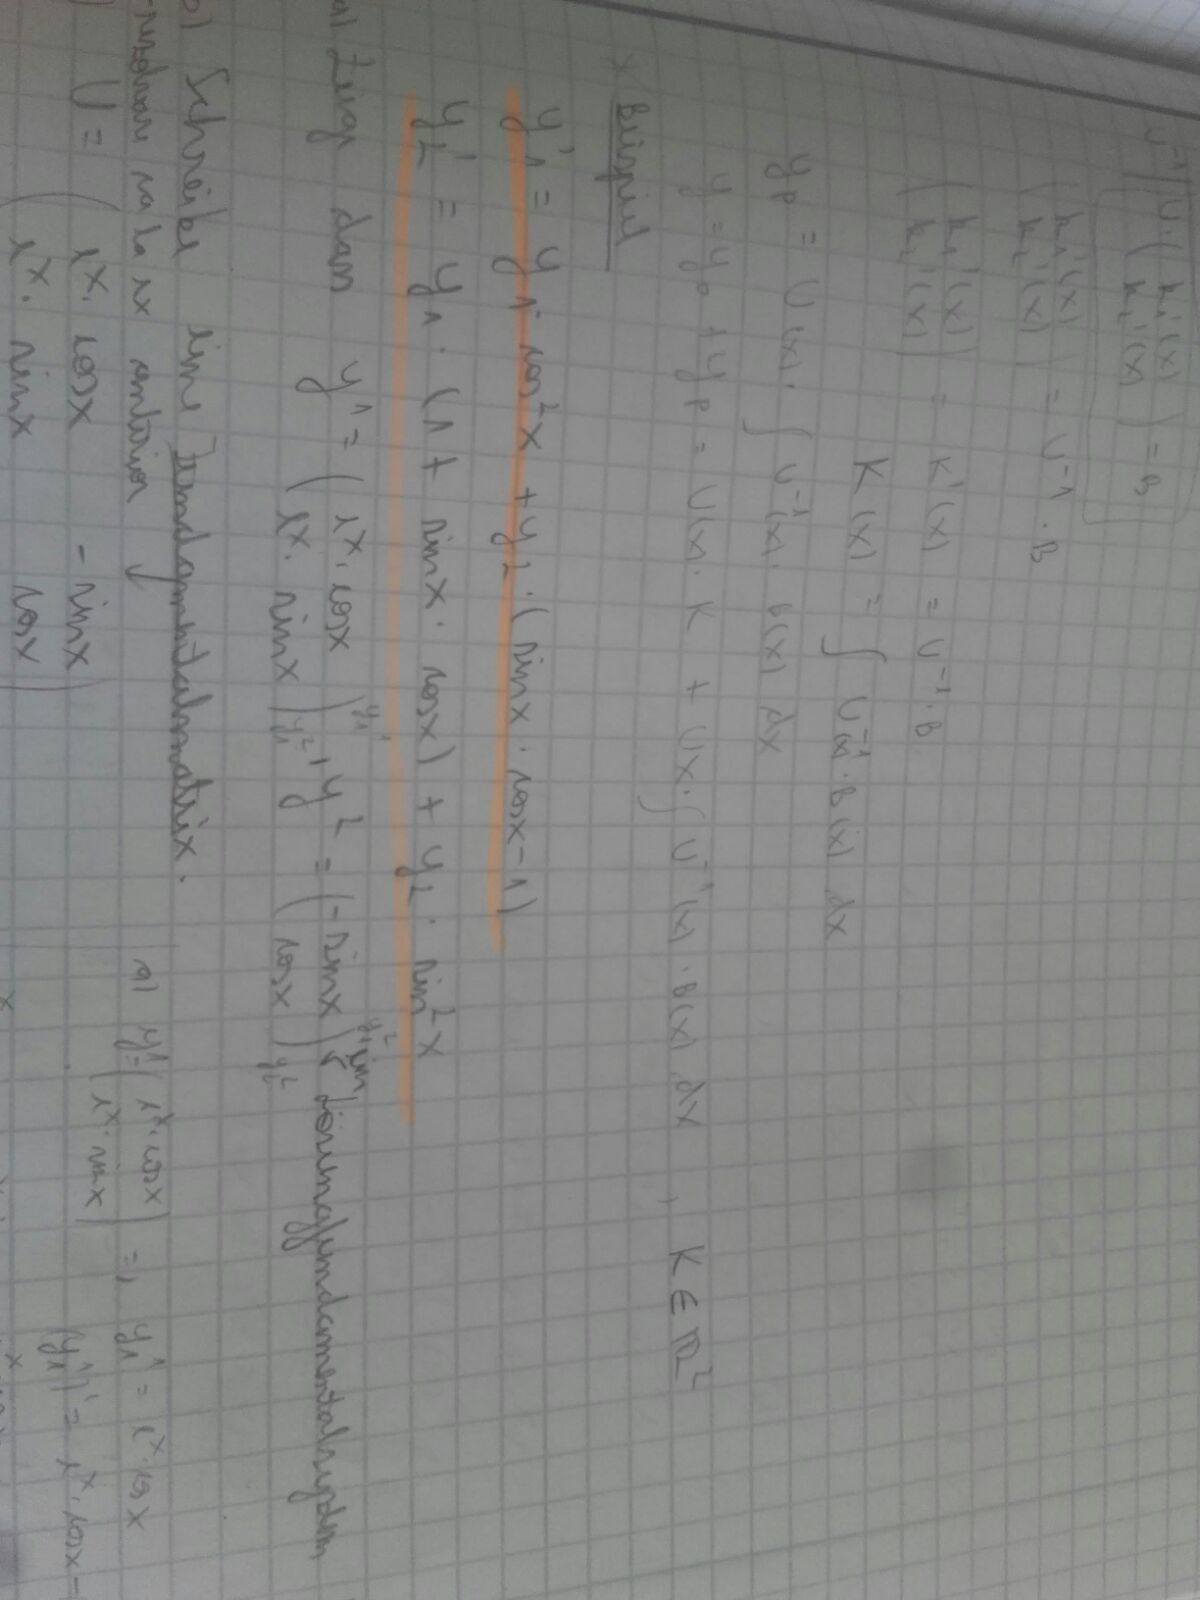 U⁻¹ | U · ( k₁'(x) k₂'(x) ) = B
( k₁'(x) k₂'(x) ) = U⁻¹ · B
( k₁'(x) k₂'(x) ) = K'(x) = U⁻¹ · B
K(x) = ∫ U⁻¹(x) · B(x) dx
yp = U(x) · ∫ U⁻¹(x) · B(x) dx
y = y₀ + yp = U(x) · K + Ux · ∫ U⁻¹(x) · B(x) dx , K ∈ ℝ²
x Beispiel
y₁' = y₁ · cos²x + y₂ · (sinx · cosx - 1)
y₂' = y₁ · (1 + sinx · cosx) + y₂ · sin²x
a) Zeige dass y¹ = ( eˣ · cosx eˣ · sinx ) , y² = ( - sinx cosx ) ein Lösungfundamentalsystem
b) Schreibe eine Fundamentalmatrix.
-rezolvare ca la ex anterior
U = ( eˣ · cosx - sinx
eˣ · sinx cosx
a) y¹ = ( eˣ · cosx eˣ · sinx ) => y₁¹ = eˣ · cosx
(y₁¹)' = eˣ · cosx -